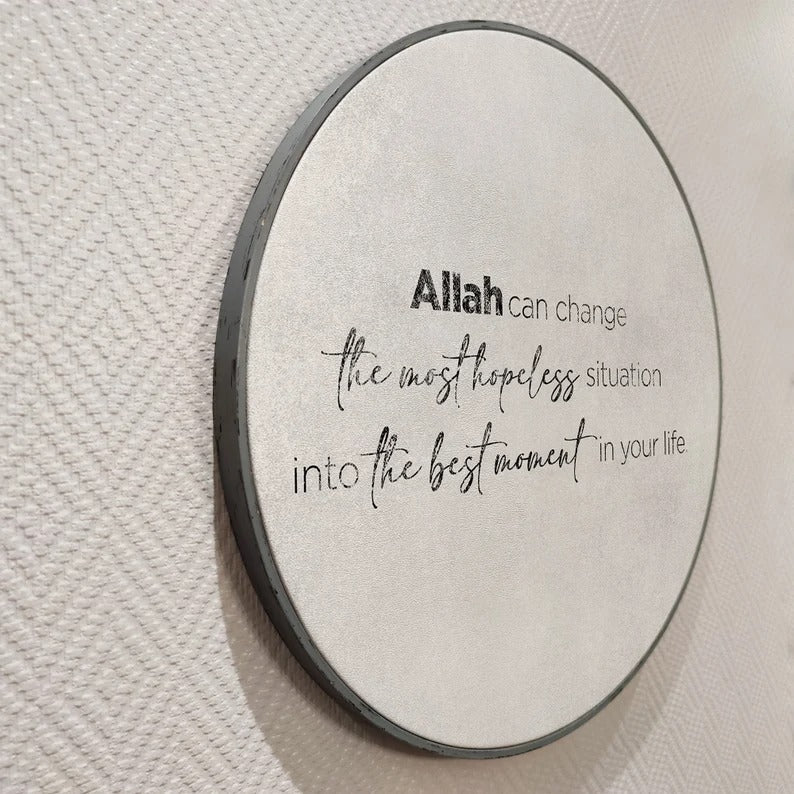 Allah can change
the most hopeless situation
into the best moment in your life.